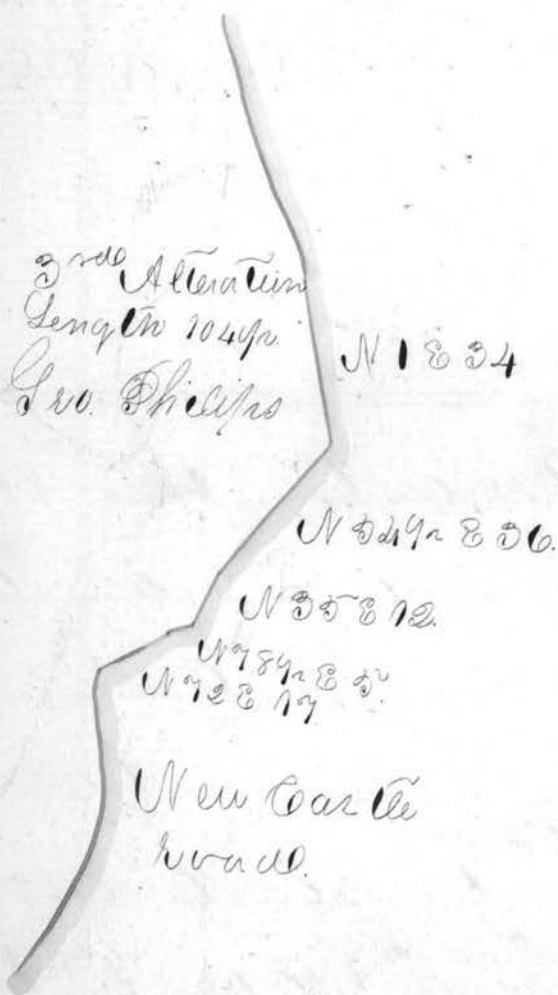 3rd Alteration
Length 104½
Geo. Philips
N 1 E 34
N 54½ E 36.
N 35 E 12.
N 78½ E 5
N 72 E 17
New Castle
road.